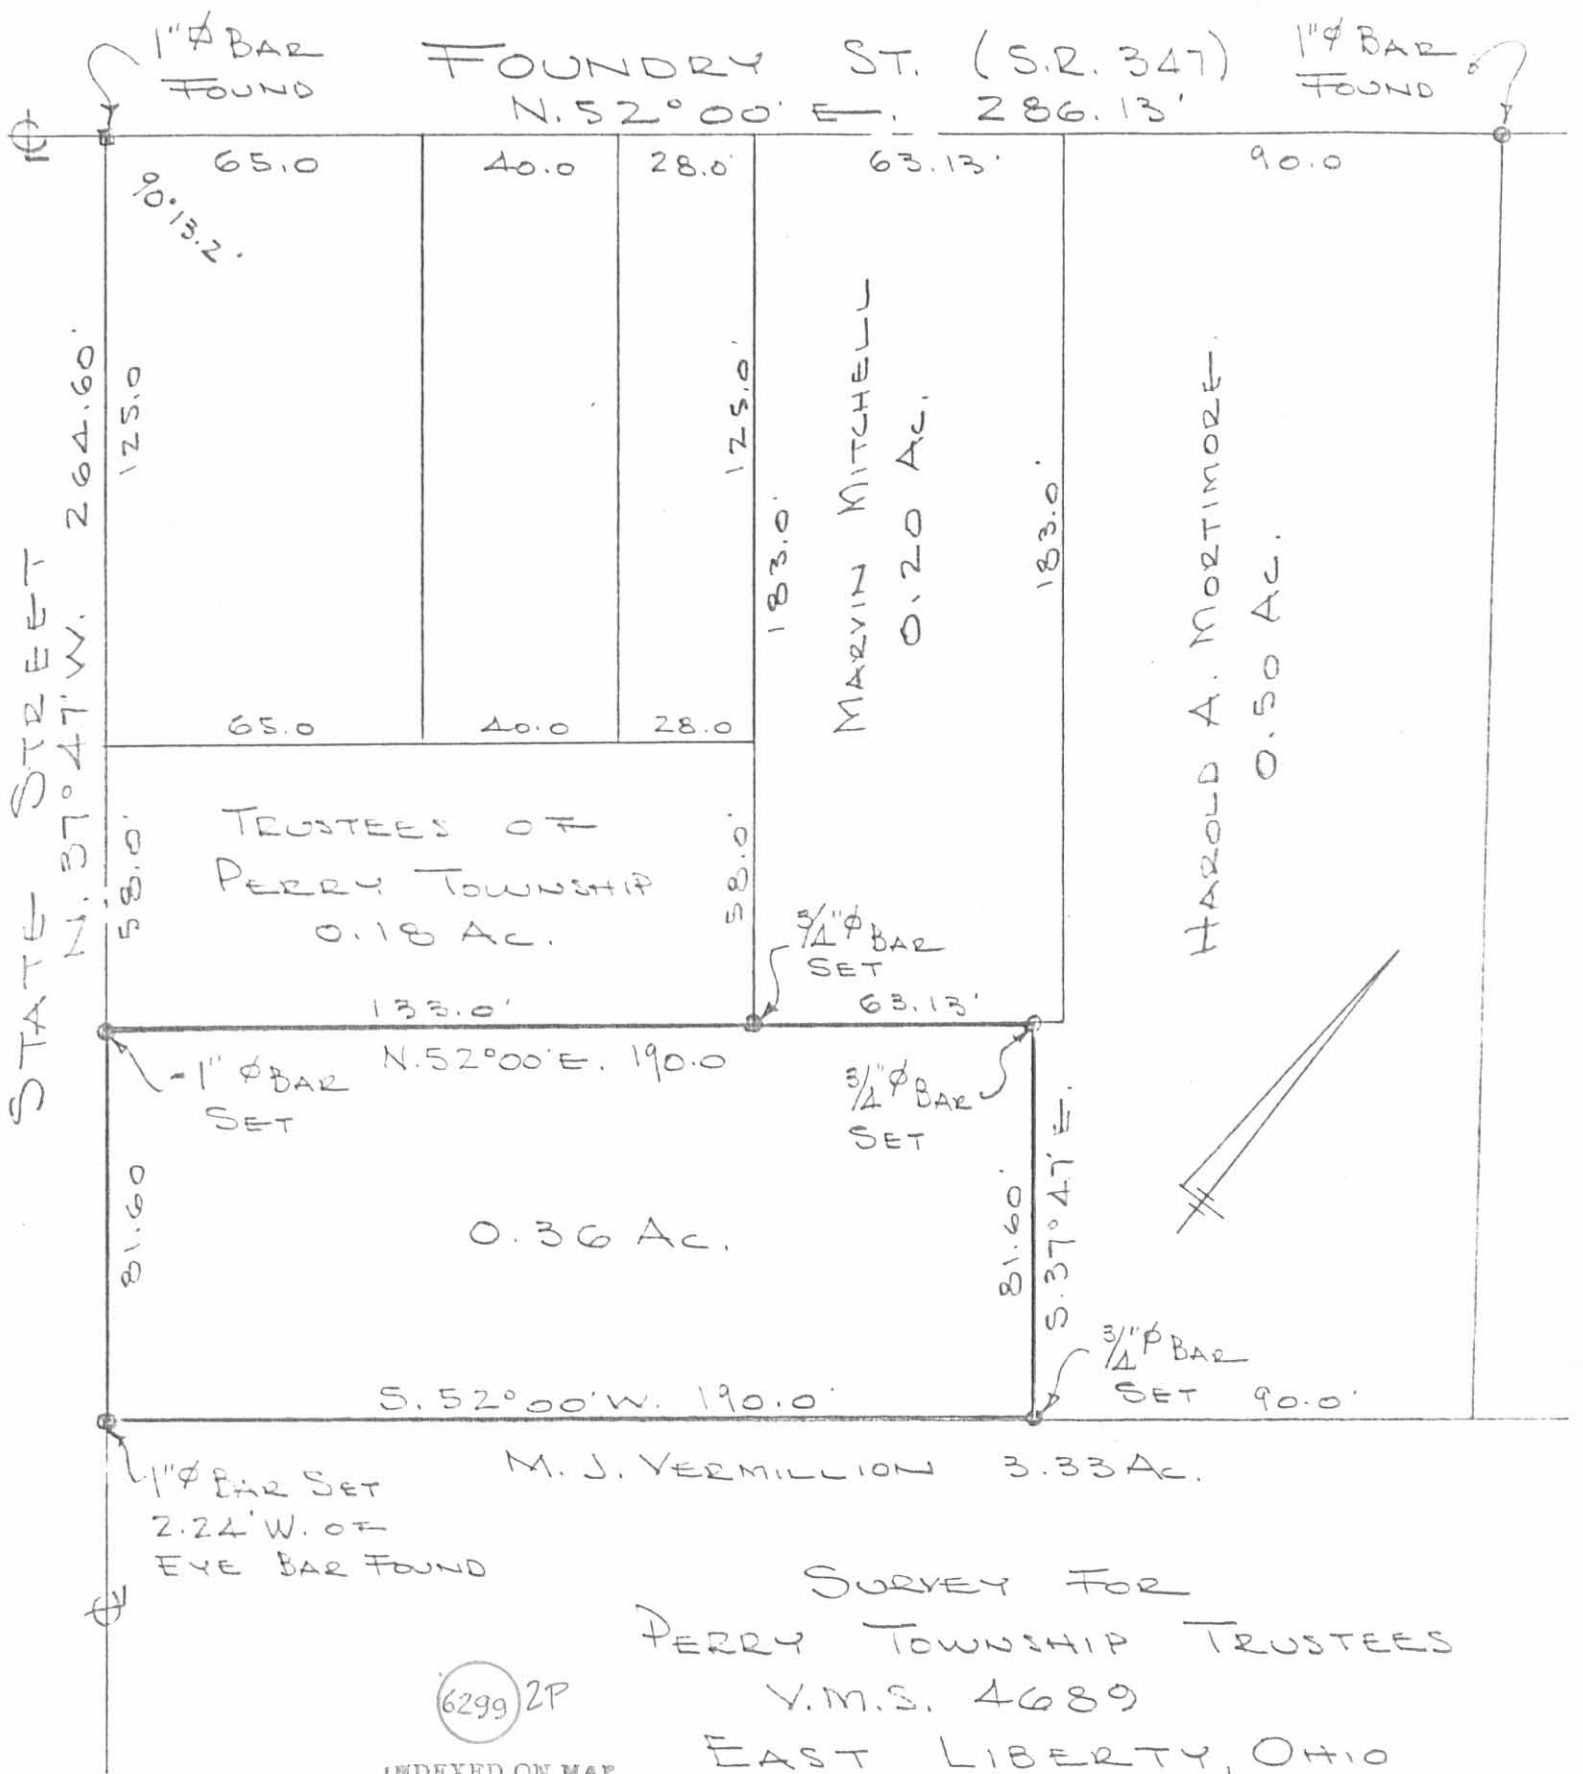 1"⌀ BAR
FOUND
FOUNDRY ST. (S.R. 347)
N.52°00' E. 286.13'
1"⌀ BAR
FOUND
65.0
40.0
28.0'
63.13'
90.0
90°13.2'
STATE STREET
N.37°47'W. 264.60'
125.0
125.0'
183.0'
MARVIN MITCHELL
0.20 AC.
183.0'
HAROLD A. MORTIMORE
0.50 AC.
65.0
40.0
28.0
58.0'
TRUSTEES OF
PERRY TOWNSHIP
0.18 AC.
58.0'
3/4"⌀ BAR
SET
133.0'
63.13'
N.52°00'E. 190.0
1" ⌀ BAR
SET
3/4"⌀ BAR
SET
81.60
0.36 AC.
81.60'
S.37°47'E.
3/4"⌀ BAR
SET
90.0'
S. 52°00'W. 190.0'
M. J. VERMILLION 3.33 AC.
1"⌀ BAR SET
2.24' W. OF
EYE BAR FOUND
SURVEY FOR
PERRY TOWNSHIP TRUSTEES
V.M.S. 4689
EAST LIBERTY, OHIO
6299 2P
INDEXED ON MAP